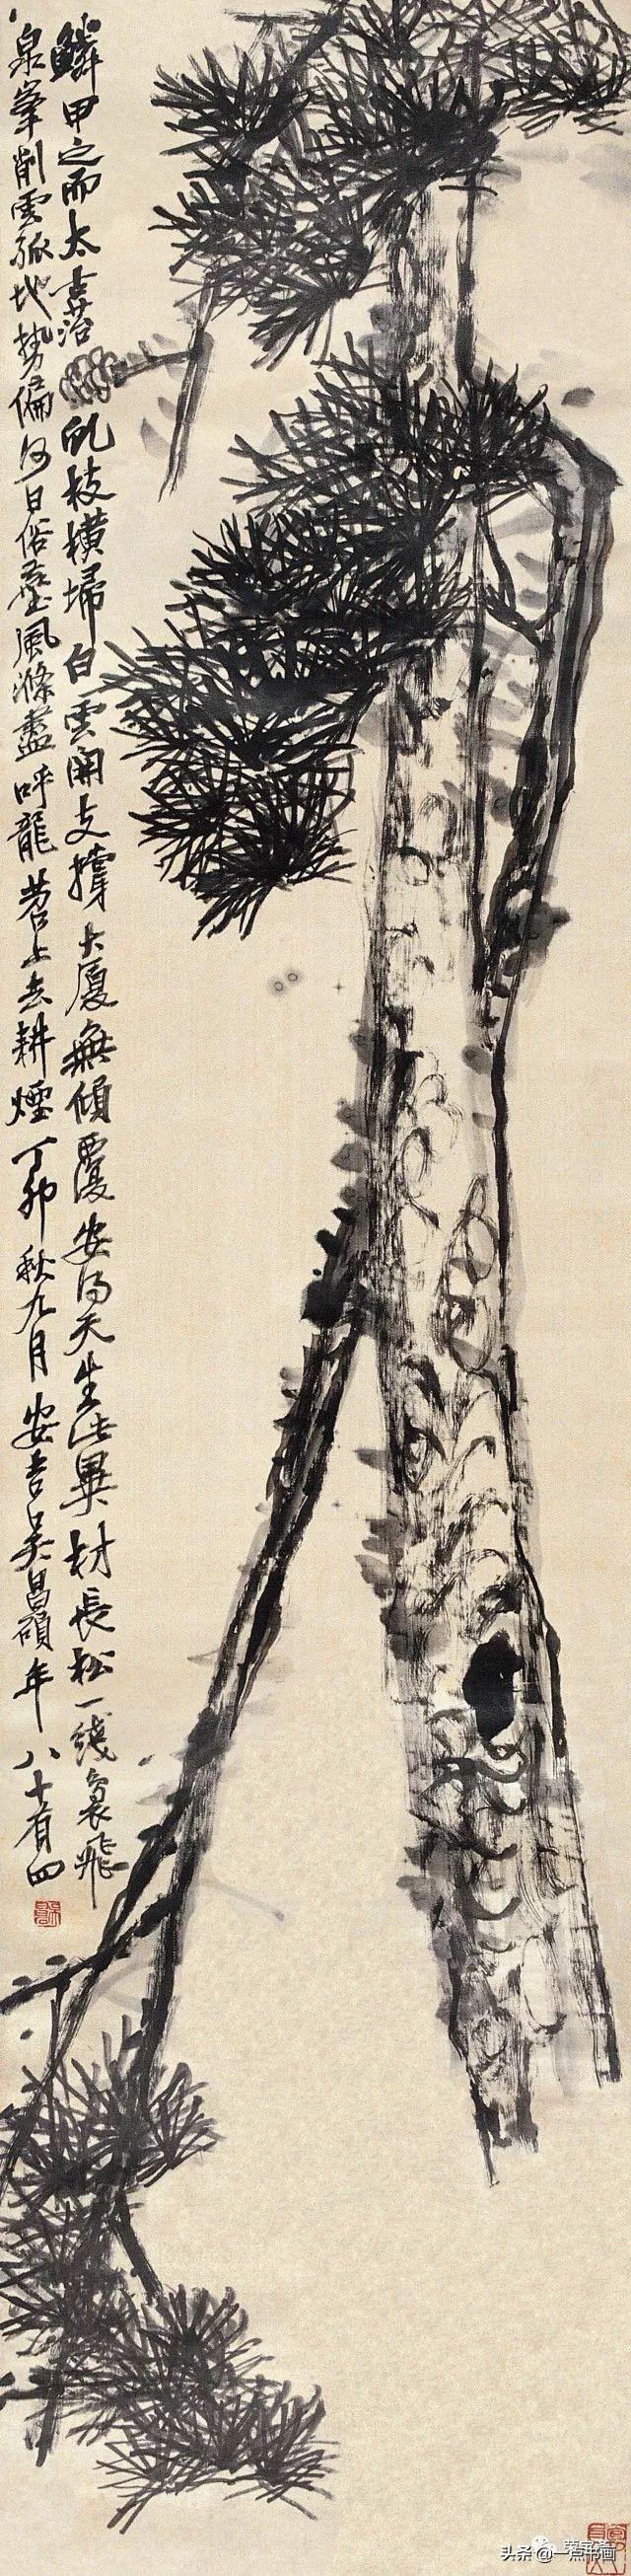 鱗甲之而太古苔虬枝橫埽白雲開支撐大廈無傾覆安得天生此異材長松一綫裊飛
泉峯削雲孤地勢偏何日俗塵風滌盡呼龍苕上去耕煙丁卯秋九月安吉吳昌碩年八十有四
头条 @一点书画